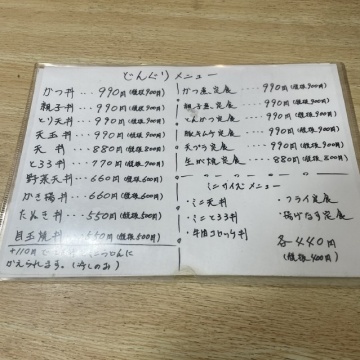 どんぶりメニュー
かつ丼・・・990円(税抜900円)
親子丼・・・990円(税抜900円)
とり天丼・・・990円(税抜900円)
天玉丼・・・990円(税抜900円)
天丼・・・880円(税抜800円)
とろろ丼・・・770円(税抜700円)
野菜天丼・・・660円(税抜600円)
かき揚丼・・・660円(税抜600円)
たぬき丼・・・550円(税抜500円)
目玉焼丼・・・550円(税抜500円)
+110円で
かえられます。
かつ煮定食・・・・990円(税抜900円)
親子煮定食・・・・990円(税抜900円)
とんかつ定食・・・990円(税抜900円)
豚キムチ定食・・・990円(税抜900円)
天ぷら定食・・・・990円(税抜900円)
定食・・・880円(税抜800円)
ミニサイズメニュー
・ミニ天丼
・ミニとろろ丼
・牛肉コロッケ丼
・フライ定食
・揚げなす定食
各440円
(税抜400円)